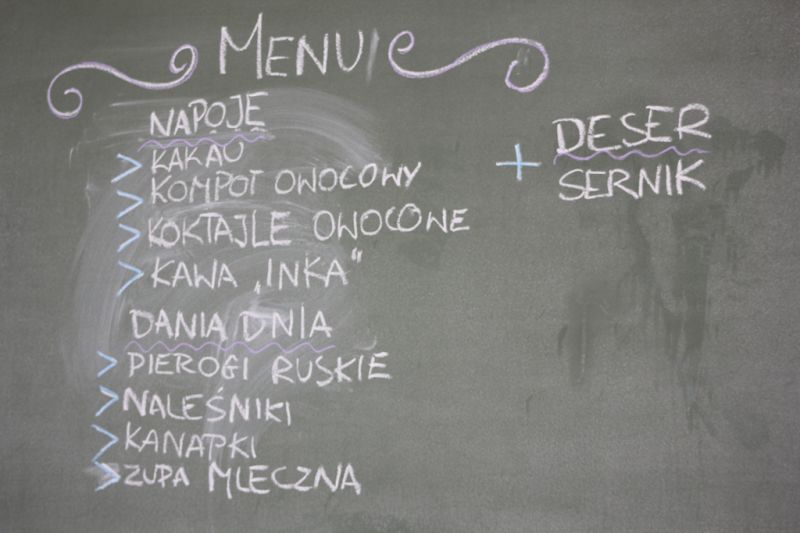 MENU
NAPOJE
> KAKAO
> KOMPOT OWOCOWY
> KOKTAJLE OWOCOWE
> KAWA „INKA"
DANIA DNIA
> PIEROGI RUSKIE
> NALEŚNIKI
> KANAPKI
> ZUPA MLECZNA
+ DESER
SERNIK